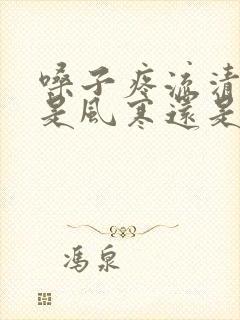 嗓子疼流清
是風寒還是
馮泉